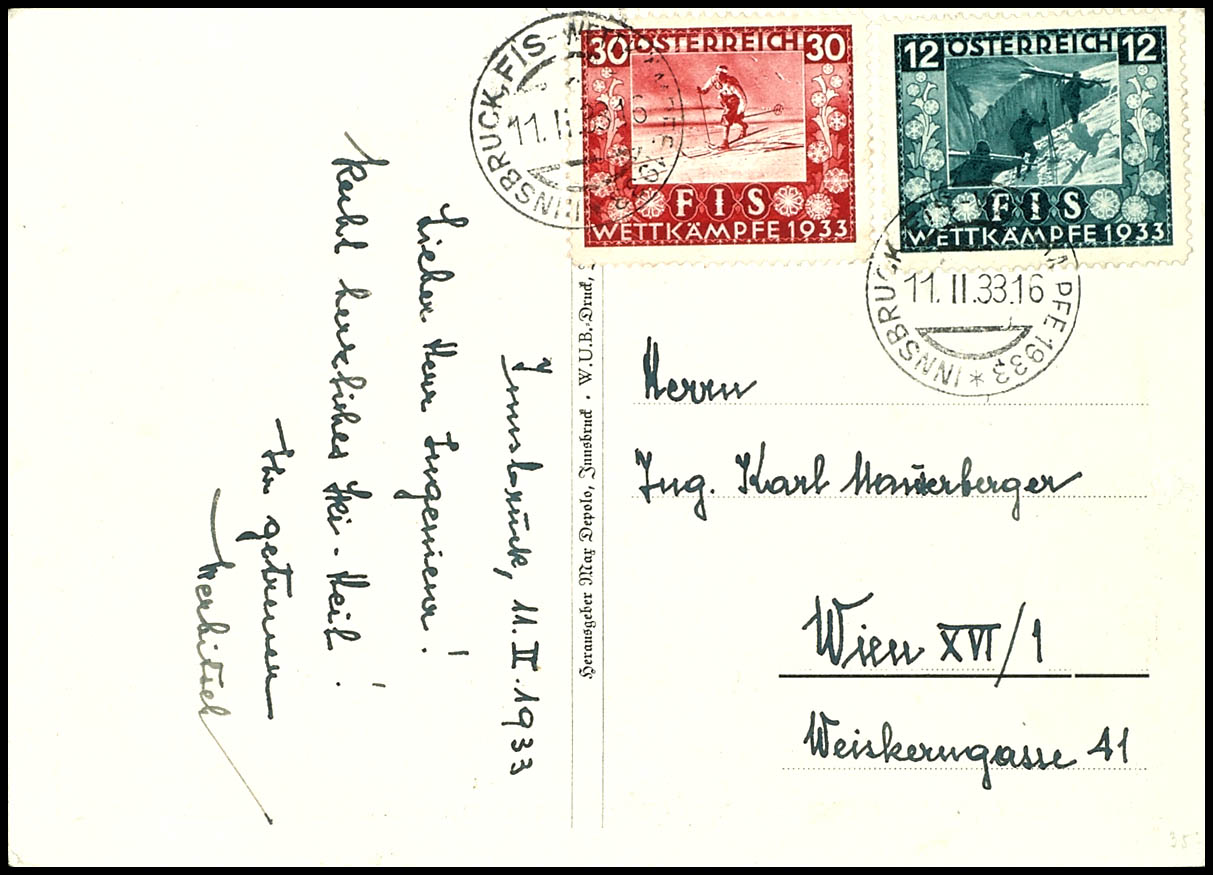 30 ÖSTERREICH 30
FIS
WETTKÄMPFE 1933
12 ÖSTERREICH 12
FIS
WETTKÄMPFE 1933
INNSBRUCK, FIS-WETTKÄMPFE 1933 *
11.II.33 16
INNSBRUCK, FIS-WETTKÄMPFE 1933 *
11.II.33.16
Innsbruck, 11.II.1933
Lieber Herr Ingenieur!
Recht herzliches Ski-Heil!
Ihr getreuer
Werbitsch
Herausgeber Max Depolo, Innsbruck · W.U.B.-Druck,
Herrn
Ing. Karl Mauerberger
Wien XVI/1
Weiskerngasse 41
35